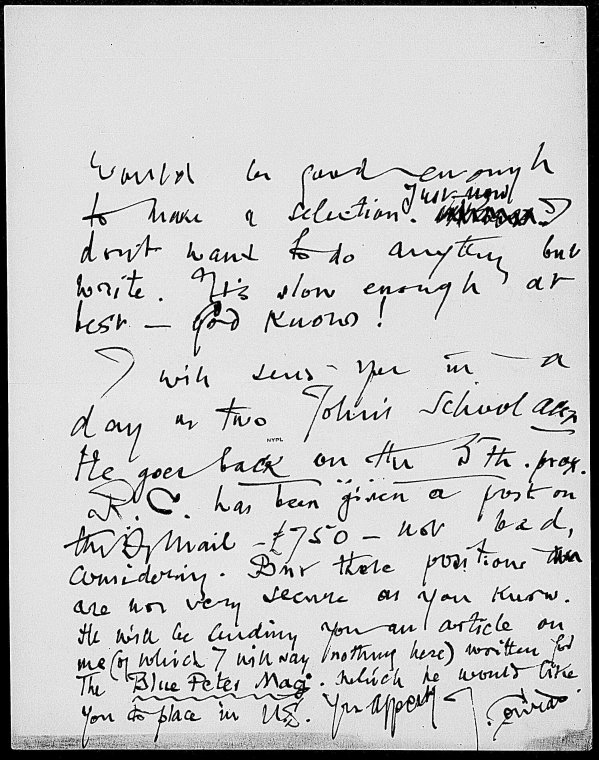 would be good enough
to make a selection. Just now I
don't want to do anything but
write. It is slow enough at
best — God Knows!
I will send you in a
day or two John's School acc
He goes back on the 5th. prox.
R. C. has been given a post on
the Dy Mail – £750 – not bad,
considering. But these positions
are not very secure as you know.
He will be sending you an article on
me (of which I will say nothing here) written for
The Blue Peter Mag. which he would like
you to place in US. Yrs affectly J. Conrad.
NYPL